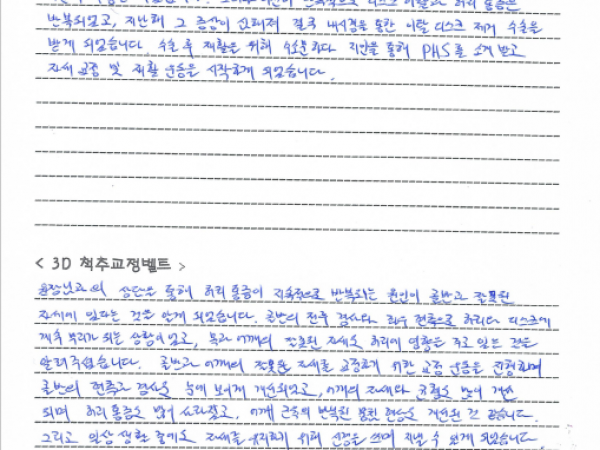 반복되었고, 지난해 그 증상이 악화되어 결국 내시경을 통한 이탈 디스크 제거 수술을
받게 되었습니다. 수술 후 재활을 위해 수소문하다 지인을 통해 PHS를 소개 받고
자세 교정 및 재활 운동을 시작하게 되었습니다.
< 3D 척추교정벨트 >
원장님과의 상담을 통해 허리 통증이 지속적으로 반복되는 원인이 골반과 잘못된
자세에 있다는 것을 알게 되었습니다. 골반의 전후 경사나 좌우 편중으로 허리나 디스크에
계속 무리가 되는 상황이었고, 목과 어깨의 잘못된 자세도 허리에 영향을 주고 있는 것을
알려주셨습니다. 골반과 어깨의 잘못된 자세를 교정하기 위한 교정 운동을 진행하며
골반의 편중과 경사는 눈에 보이게 개선되었고, 어깨의 자세나 균형도 많이 개선
되며 허리 통증도 많이 사라졌고, 어깨 근육의 반복된 뭉침 현상도 개선된 것 같습니다.
그리고 일상 생활 중에도 자세를 유지하기 위해 신경을 쓰며 지낼 수 있게 되었습니다.